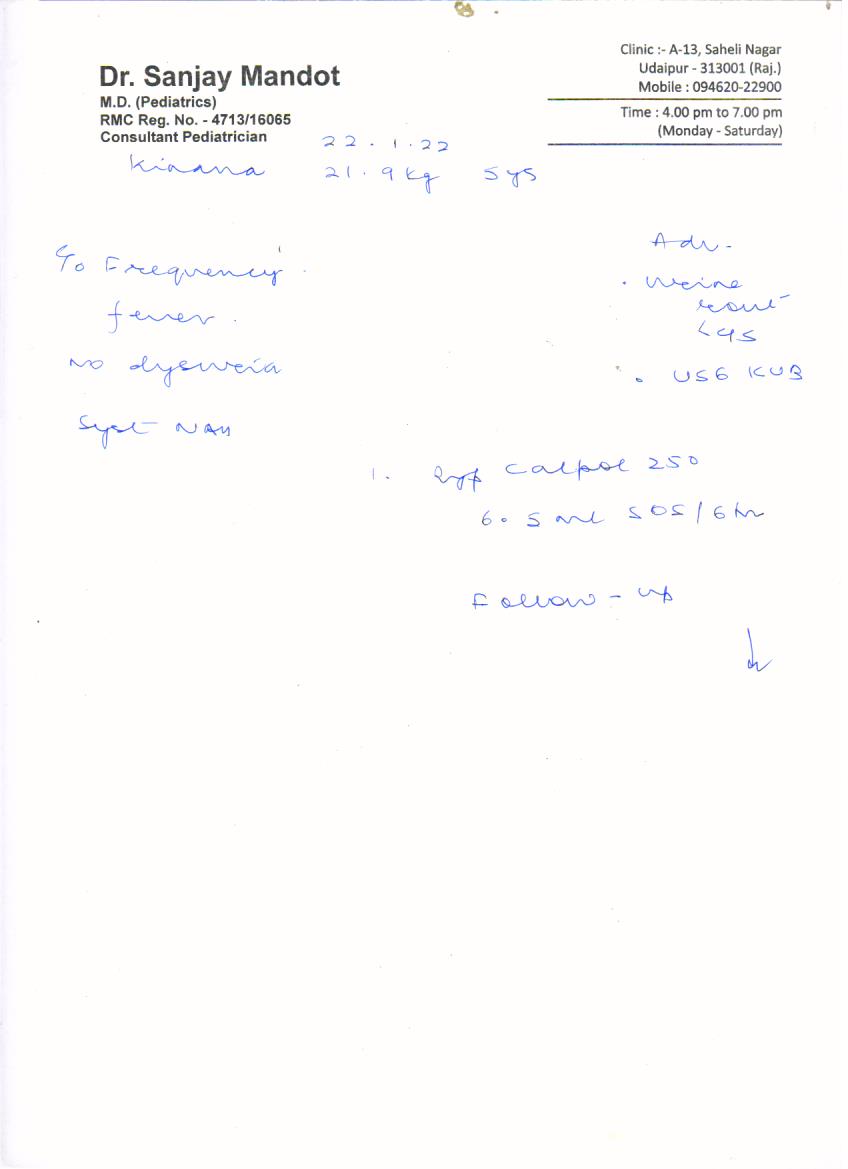 Dr. Sanjay Mandot
M.D. (Pediatrics)
RMC Reg. No. - 4713/16065
Consultant Pediatrician
Clinic :- A-13, Saheli Nagar
Udaipur - 313001 (Raj.)
Mobile : 094620-22900
Time : 4.00 pm to 7.00 pm
(Monday - Saturday)
22.1.22
Kiaana 21.9 kg 5 ys
C/o Frequency
fever
No dysuria
Syst NAD
Adv -
Urine
rout
c/s
USG KUB
1. Syp Calpol 250
6.5 ml SOS / 6 hr
Follow-up